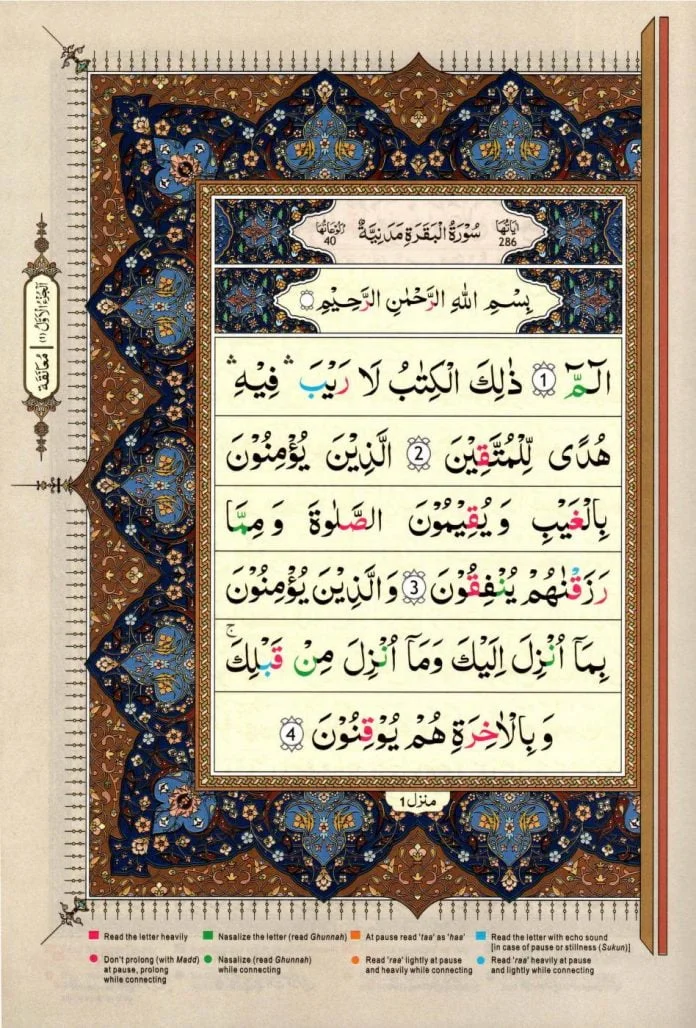 اٰيَاتُهَا 286
سُوْرَةُ الْبَقَرَةِ مَدَنِيَّةٌ
رُكُوْعَاتُهَا 40
بِسْمِ اللهِ الرَّحْمٰنِ الرَّحِيْمِ
الٓمّٓ ۝1 ذٰلِكَ الْكِتٰبُ لَا رَيْبَ ۛ فِيْهِ ۛ
هُدًى لِّلْمُتَّقِيْنَ ۝2 الَّذِيْنَ يُؤْمِنُوْنَ
بِالْغَيْبِ وَيُقِيْمُوْنَ الصَّلٰوةَ وَمِمَّا
رَزَقْنٰهُمْ يُنْفِقُوْنَ ۝3 وَالَّذِيْنَ يُؤْمِنُوْنَ
بِمَآ اُنْزِلَ اِلَيْكَ وَمَآ اُنْزِلَ مِنْ قَبْلِكَ ۚ
وَبِالْاٰخِرَةِ هُمْ يُوْقِنُوْنَ ۝4
منزل 1
الْجُزْءُ الْاَوَّلُ (١)
مُعَانَقَة
Read the letter heavily
Nasalize the letter (read Ghunnah)
At pause read 'taa' as 'haa'
Read the letter with echo sound
[in case of pause or stillness (Sukun)]
Don't prolong (with Madd)
at pause, prolong
while connecting
Nasalize (read Ghunnah)
while connecting
Read 'raa' lightly at pause
and heavily while connecting
Read 'raa' heavily at pause
and lightly while connecting